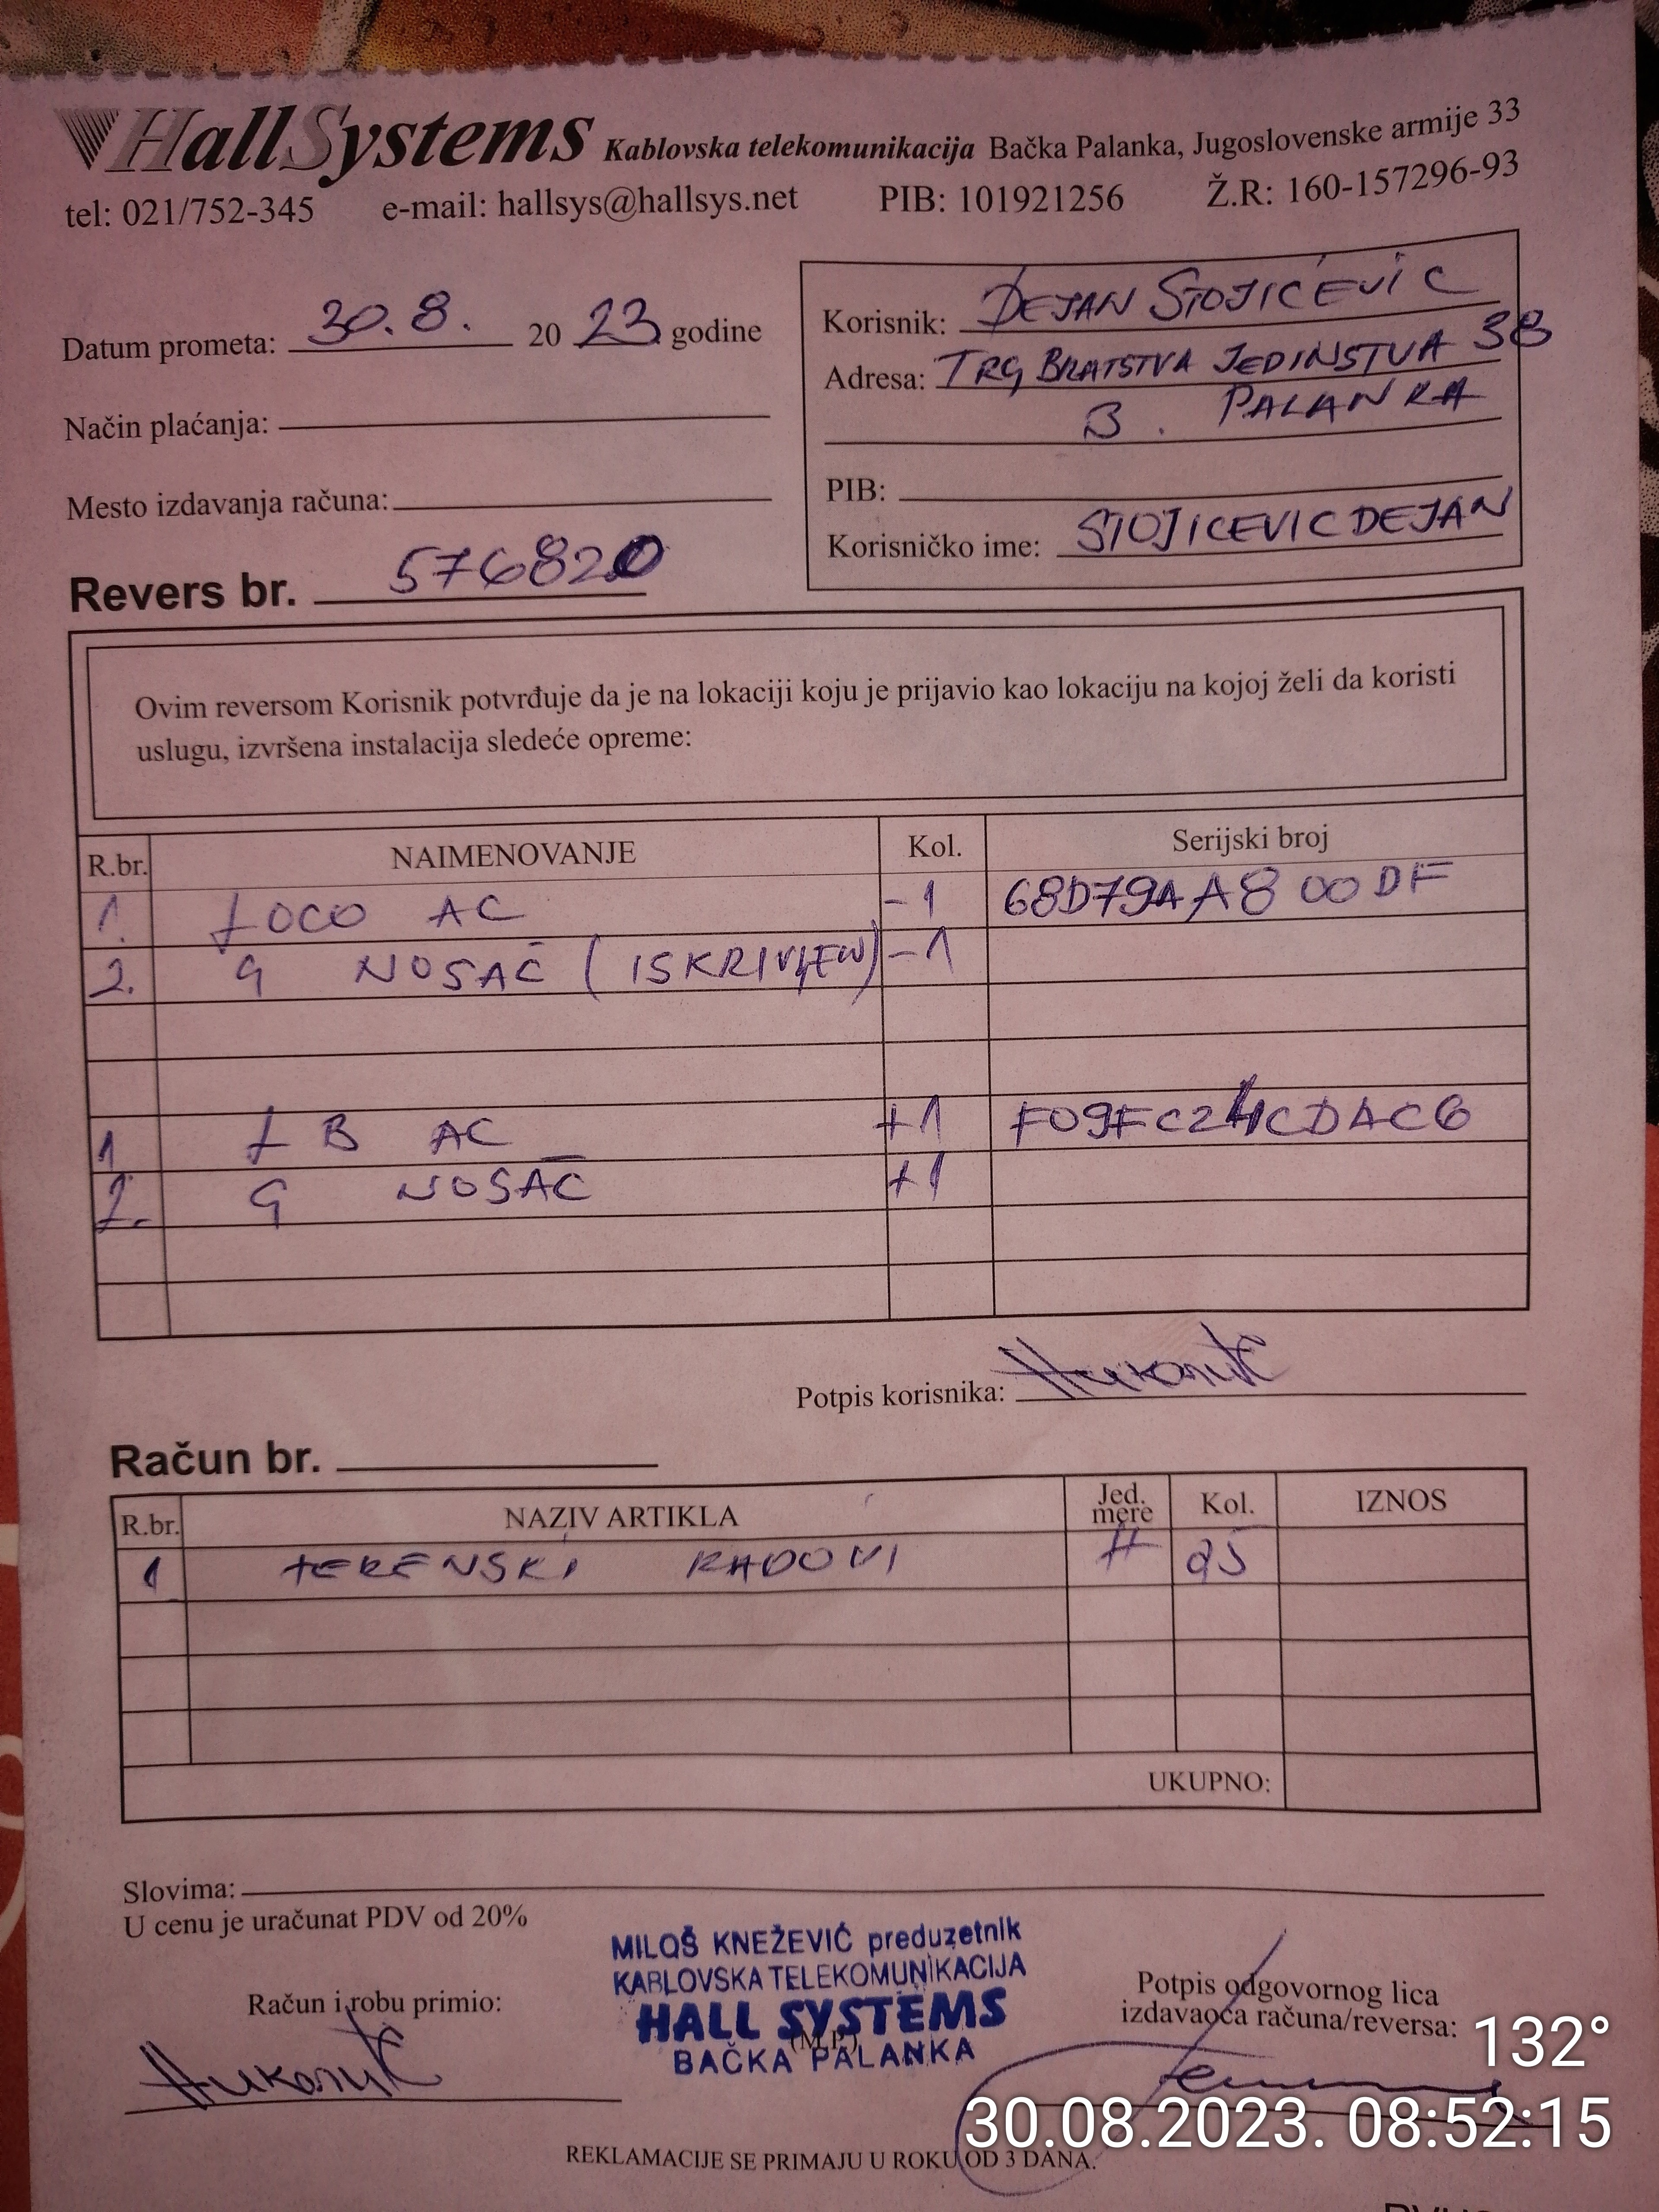 HallSystems Kablovska telekomunikacija Bačka Palanka, Jugoslovenske armije 33
tel: 021/752-345 e-mail: hallsys@hallsys.net PIB: 101921256 Ž.R: 160-157296-93
Datum prometa: 30.8. 20 23 godine
Način plaćanja:
Mesto izdavanja računa:
Revers br. 576820
Korisnik: DEJAN STOJIĆEVIC
Adresa: TRG BRATSTVA JEDINSTVA 38
B. PALANKA
PIB:
Korisničko ime: STOJICEVICDEJAN
Ovim reversom Korisnik potvrđuje da je na lokaciji koju je prijavio kao lokaciju na kojoj želi da koristi
uslugu, izvršena instalacija sledeće opreme:
R.br. NAIMENOVANJE Kol. Serijski broj
1. LOCO AC -1 68D79AA800DF
2. G NOSAČ (ISKRIVLJEN) -1
1 LB AC +1 F09FC24CDAC6
2. G NOSAČ +1
Potpis korisnika:
Račun br.
R.br. NAZIV ARTIKLA Jed. mere Kol. IZNOS
1 TERENSKI RADOVI H
UKUPNO:
Slovima:
U cenu je uračunat PDV od 20%
MILOŠ KNEŽEVIĆ preduzetnik
KABLOVSKA TELEKOMUNIKACIJA
HALL SYSTEMS
(M.P.)
BAČKA PALANKA
Račun i robu primio:
Potpis odgovornog lica
izdavaoca računa/reversa:
132°
30.08.2023. 08:52:15
REKLAMACIJE SE PRIMAJU U ROKU OD 3 DANA.